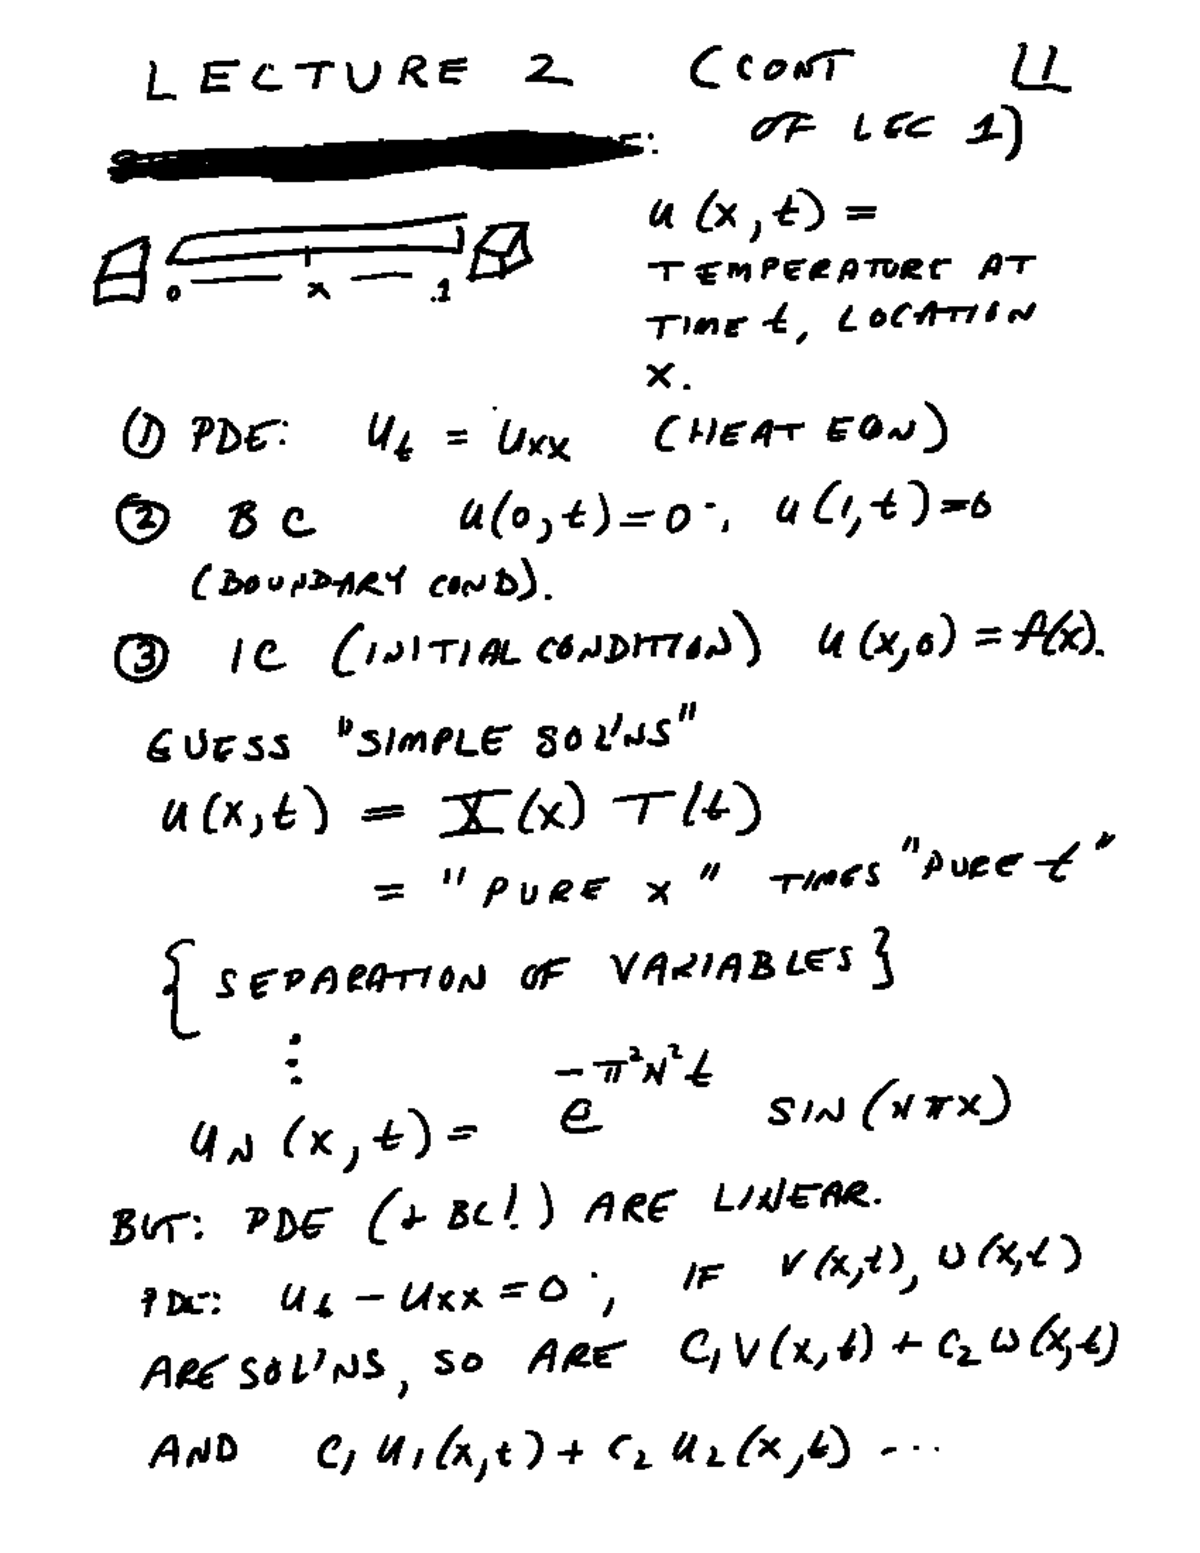 LECTURE 2 (CONT 11
OF LEC 1)
u(x,t) =
TEMPERATURE AT
0 x 1
TIME t, LOCATION
x.
① PDE: u_t = u_xx (HEAT EQN)
② BC u(0,t)=0; u(1,t)=0
(BOUNDARY COND).
③ IC (INITIAL CONDITION) u(x,0) = f(x).
GUESS "SIMPLE SOL'NS"
u(x,t) = X(x) T(t)
= "PURE x" TIMES "PURE t"
{SEPARATION OF VARIABLES}
⋮
u_N(x,t) = e^{-π²N²t} SIN(NπX)
BUT: PDE (+ BC!) ARE LINEAR.
PDE: u_t - u_xx = 0; IF v(x,t), w(x,t)
ARE SOL'NS, SO ARE C₁v(x,t) + C₂w(x,t)
AND C₁u₁(x,t) + C₂u₂(x,t) ...